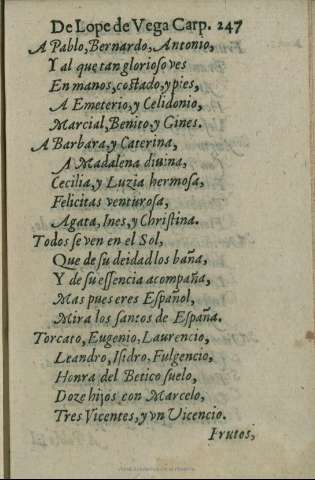 De Lope de Vega Carp. 247
A Pablo, Bernardo, Antonio,
Y al que tan glorioso ves
En manos, costado, y pies,
A Emeterio, y Celidonio,
Marcial, Benito, y Gines.
A Barbara, y Caterina,
A Madalena diuina,
Cecilia, y Luzia hermosa,
Felicitas venturosa,
Agata, Ines, y Christina.
Todos se ven en el Sol,
Que de su deidad los baña,
Y de su essencia acompaña,
Mas pues eres Español,
Mira los santos de España.
Torcato, Eugenio, Laurencio,
Leandro, Isidro, Fulgencio,
Honra del Betico suelo,
Doze hijos con Marcelo,
Tres Vicentes, y vn Vicencio.
Frutos,